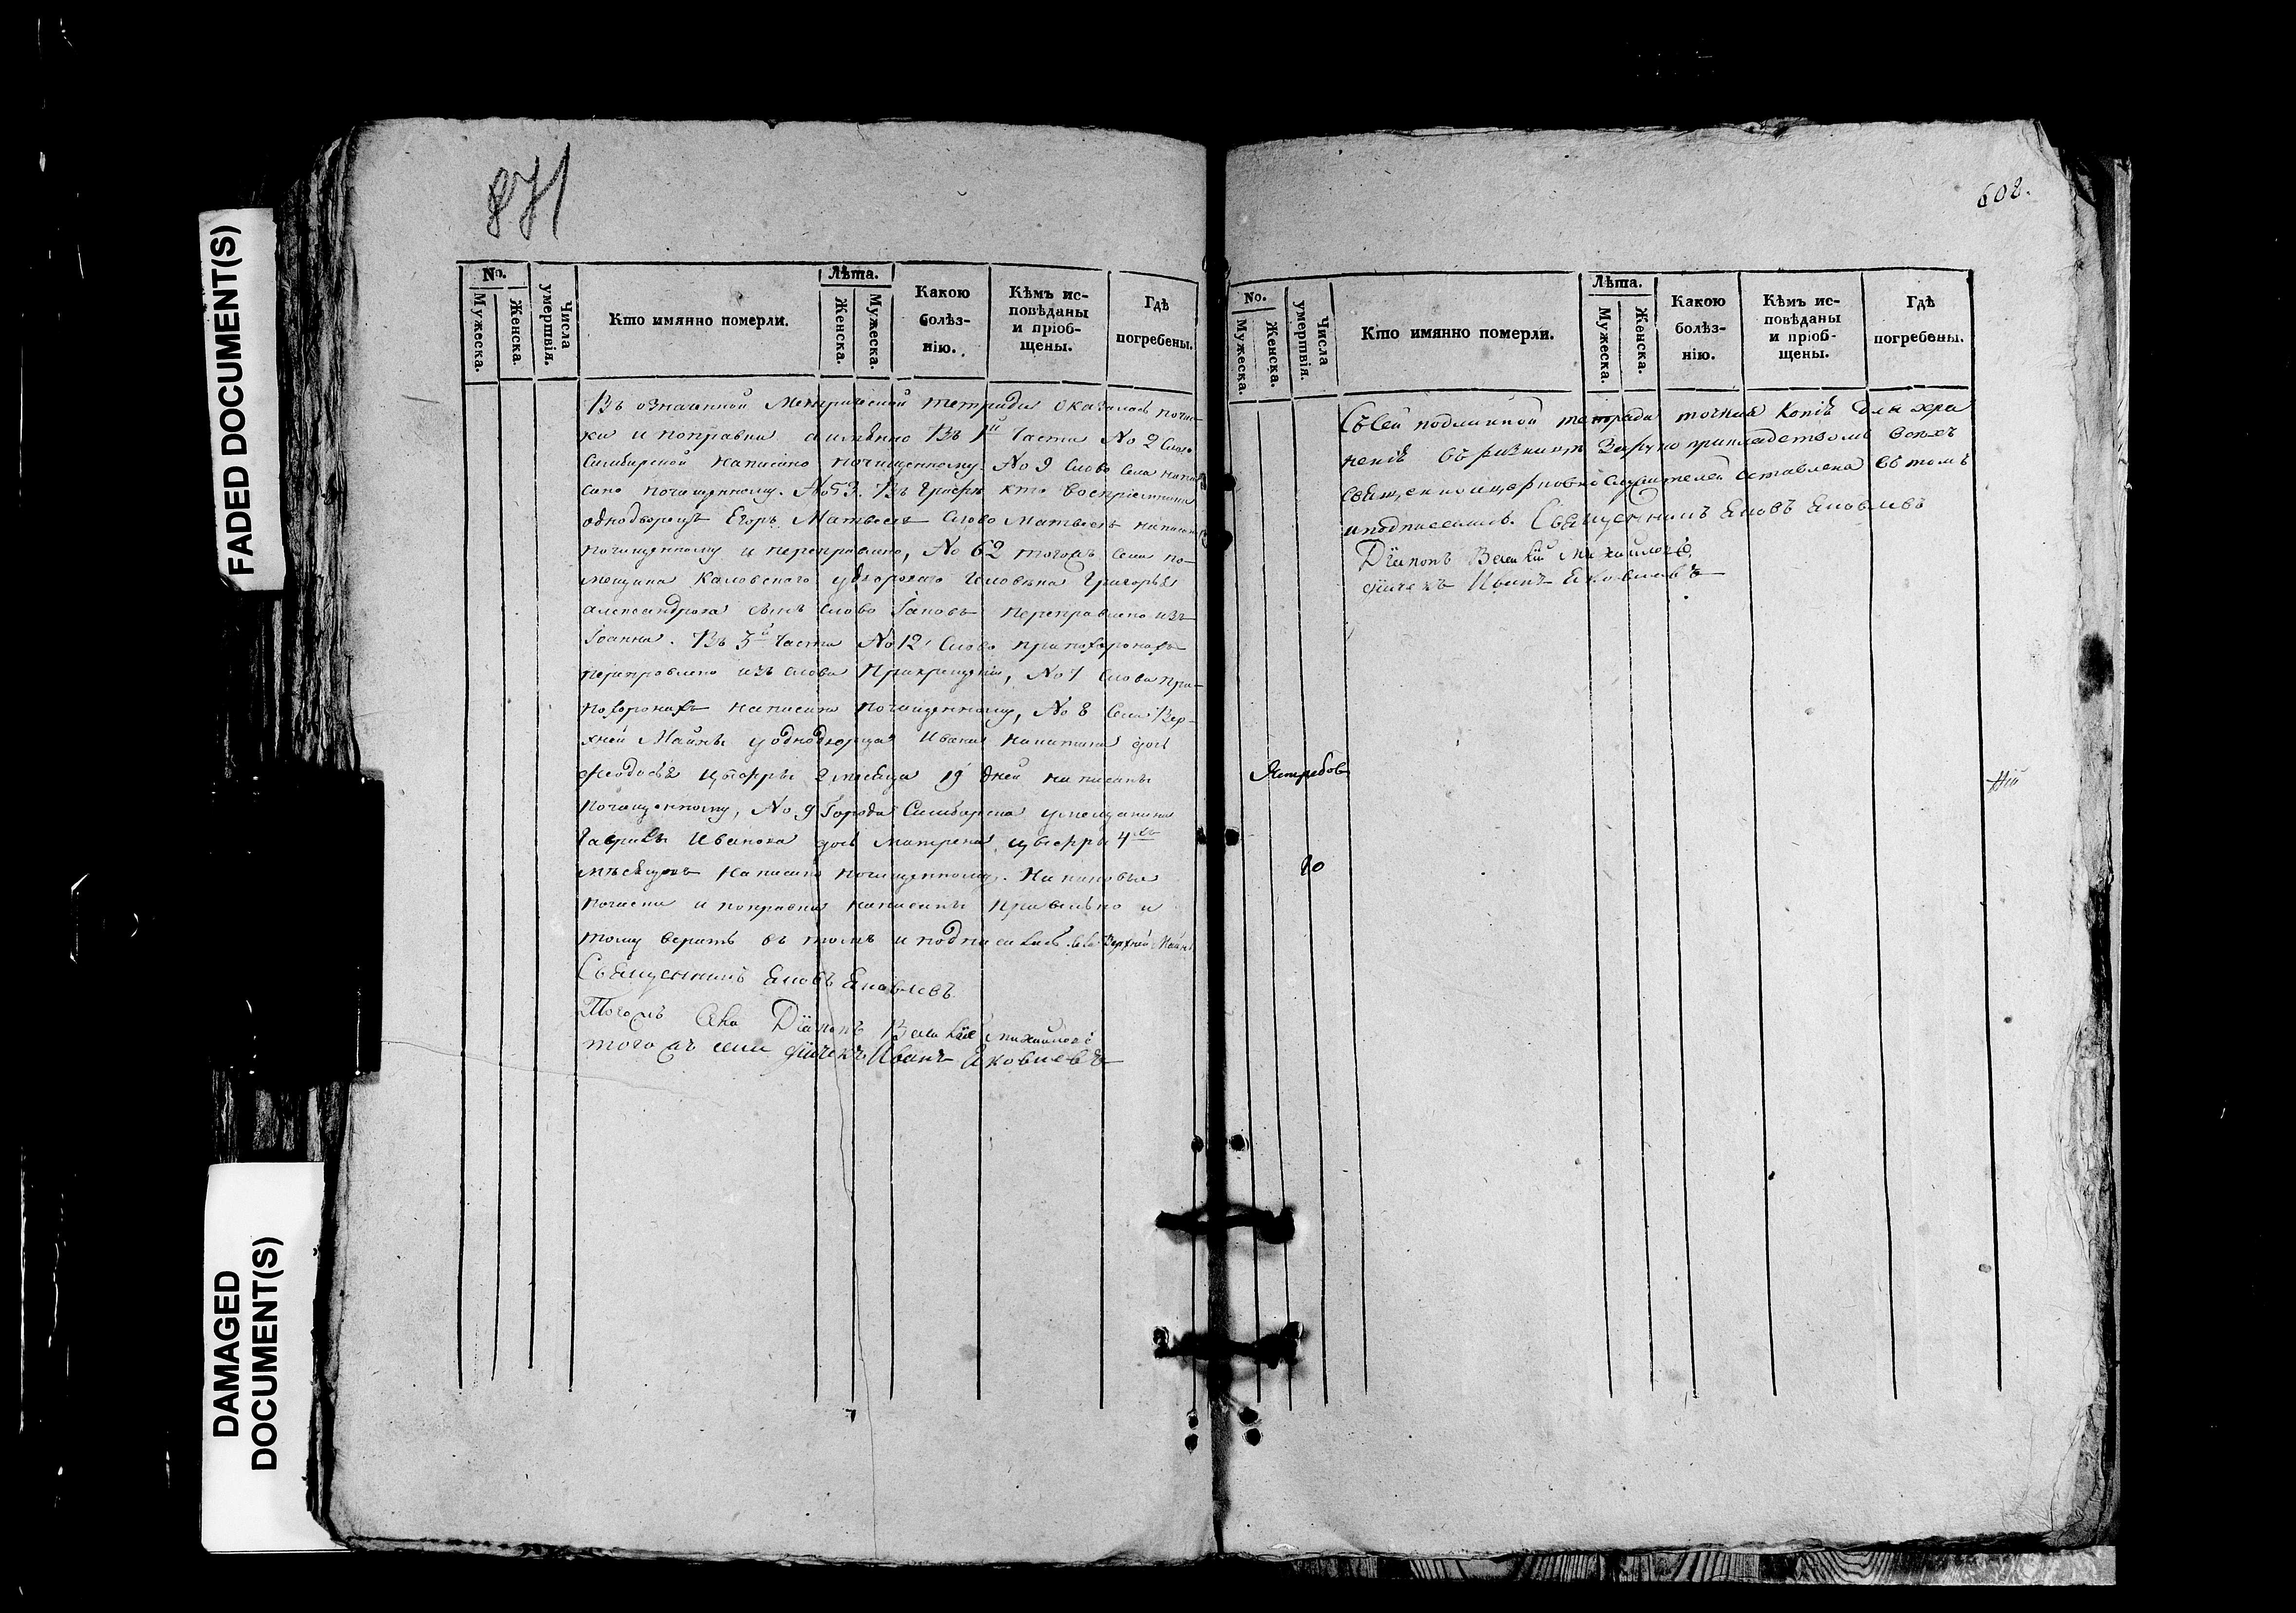 FADED DOCUMENT(S)
DAMAGED
DOCUMENT(S)
871
No.
Мужеска.
Женска.
Числа
умертвія.
Кто имянно померли.
Лѣта.
Женска.
Мужеска.
Какою
болѣз-
нію.
Кѣмъ ис-
повѣданы
и пріоб-
щены.
Гдѣ
погребены.
Въ означенной Метрической тетради оказались почис-
ки и поправки а имѣнно Въ 1й Части No 2 слово
Симбирской написано почищенному. No 9 слово села напи
сано почищенному. No 53. Въ Графѣ кто воспріемники
однодворецъ Егоръ Матвеевъ слово Матвеевъ написано
почищенному и переправлено, No 62 тогожъ села по-
мещика Каловского у дворового человѣка Григорья
александрова сынъ слово Іаковъ переправлено изъ
Іоанна. Въ 3й Части No 12 слово при похоронахъ
переправлено изъ слова При крещеніи, No 7 слова при
похоронахъ написаны почищенному, No 8 села Вер-
хней Майны у однодворца Ивана Никитина дочь
Феодосья цыфры 2 месяца 19 дней написаны
почищенному, No 9 Города Симбирска у мещанина
Гаврилы Иванова дочь Матрена цыфры 4хъ
месяцовъ написаны почищенному. Каковые
почиски и поправки написаны правильно и
тому верить въ томъ и подписались села Верхней Майны
Священникъ Іаковъ Яковлевъ
Тогожъ села Діаконъ Василій Михайловъ
тогожъ села дячекъ Иванъ Яковлевъ
608.
No.
Мужеска.
Женска.
Числа
умертвія.
Кто имянно померли.
Лѣта.
Мужеска.
Женска.
Какою
болѣз-
нію.
Кѣмъ ис-
повѣданы
и пріоб-
щены.
Гдѣ
погребены.
Съ сей подлинной тетради точная Копія для хра
ненія въ ризницѣ Церкви оставлена въ томъ
и подписались. Священникъ Іаковъ Яковлевъ
Діаконъ Василій Михайловъ
дячекъ Иванъ Яковлевъ
Ястребов